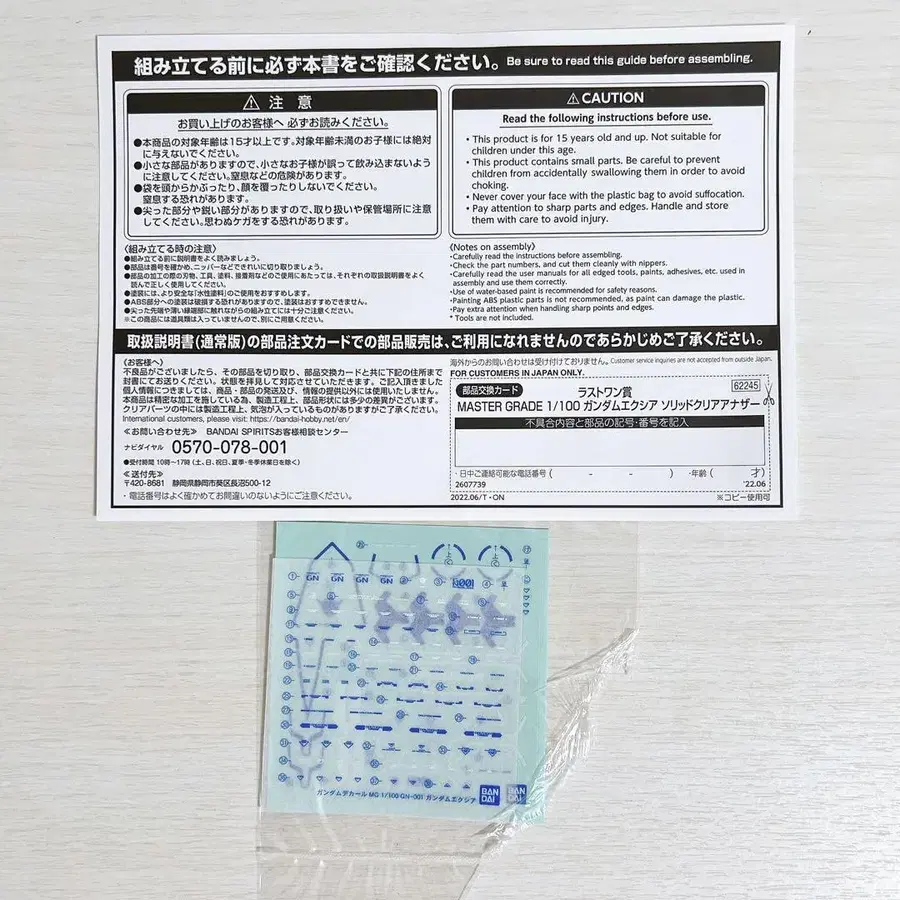 組み立てる前に必ず本書をご確認ください。 Be sure to read this guide before assembling.
⚠ 注 意
お買い上げのお客様へ 必ずお読みください。
●本商品の対象年齢は15才以上です。対象年齢未満のお子様には絶対
に与えないでください。
●小さな部品がありますので、小さなお子様が誤って飲み込まないよう
に注意してください。窒息などの危険があります。
●袋を頭からかぶったり、顔を覆ったりしないでください。
窒息する恐れがあります。
●尖った部分や鋭い部分がありますので、取り扱いや保管場所に注意
してください。思わぬケガをする恐れがあります。
⚠CAUTION
Read the following instructions before use.
・This product is for 15 years old and up. Not suitable for
children under this age.
・This product contains small parts. Be careful to prevent
children from accidentally swallowing them in order to avoid
choking.
・Never cover your face with the plastic bag to avoid suffocation.
・Pay attention to sharp parts and edges. Handle and store
them with care to avoid injury.
〈組み立てる時の注意〉
●組み立てる前に説明書をよく読みましょう。
●部品は番号を確かめ、ニッパーなどできれいに切り取りましょう。
●部品の加工の際の刃物、工具、塗料、接着剤などのご使用にあたっては、それぞれの取扱説明書をよく
読んで正しく使用してください。
●塗装には、より安全な「水性塗料」のご使用をおすすめします。
●ABS部分への塗装は破損する恐れがありますので、塗装はおすすめできません。
●尖った先端や薄い縁端部に触れながらの組み立てには十分ご注意ください。
※この商品には道具類は入っていませんので、別にご用意ください。
《Notes on assembly》
・Carefully read the instructions before assembling.
・Check the part numbers, and cut them cleanly with nippers.
・Carefully read the user manuals for all edged tools, paints, adhesives, etc. used in
assembly and use them correctly.
・Use of water-based paint is recommended for safety reasons.
・Painting ABS plastic parts is not recommended, as paint can damage the plastic.
・Pay extra attention when handling sharp points and edges.
・Tools are not included.
取扱説明書(通常版)の部品注文カードでの部品販売は、ご利用になれませんのであらかじめご了承ください。
〈お客様へ〉
不良品がございましたら、その部品を切り取り、部品交換カードと共に下記の住所まで
封書にてお送りください。状態を拝見して対応させていただきます。ご記入頂きました
個人情報につきましては、商品・部品の発送及び、情報の提供以外には使用いたしません。
本商品は精密な加工を施している為、製造工程上、部品形状には多少の差異がございます。
クリアパーツの中には製造工程上、気泡が入っているものがありますがご了承ください。
International customers, please visit: https://bandai-hobby.net/en/
≪お問い合わせ先≫ BANDAI SPIRITSお客様相談センター
ナビダイヤル 0570-078-001
●受付時間 10時〜17時(土、日、祝日、夏季・冬季休業日を除く)
≪送付先≫
〒420-8681 静岡県静岡市葵区長沼500-12
・電話番号はよく確かめてお間違いのないようにご注意ください。
海外からのお問い合わせは受け付けておりません。Customer service inquiries are not accepted from outside Japan.
FOR CUSTOMERS IN JAPAN ONLY.
部品交換カード ラストワン賞 62245
MASTER GRADE 1/100 ガンダムエクシア ソリッドクリアアナザー
不具合内容と部品の記号・番号を記入
・日中ご連絡可能な電話番号 ( - - ) ・年齢( 才)
2607739 '22.06
2022.06/T・ON ※コピー使用可
GN GN GN
001
ガンダムデカール MG 1/100 GN-001 ガンダムエクシア BAN DAI BAN DAI